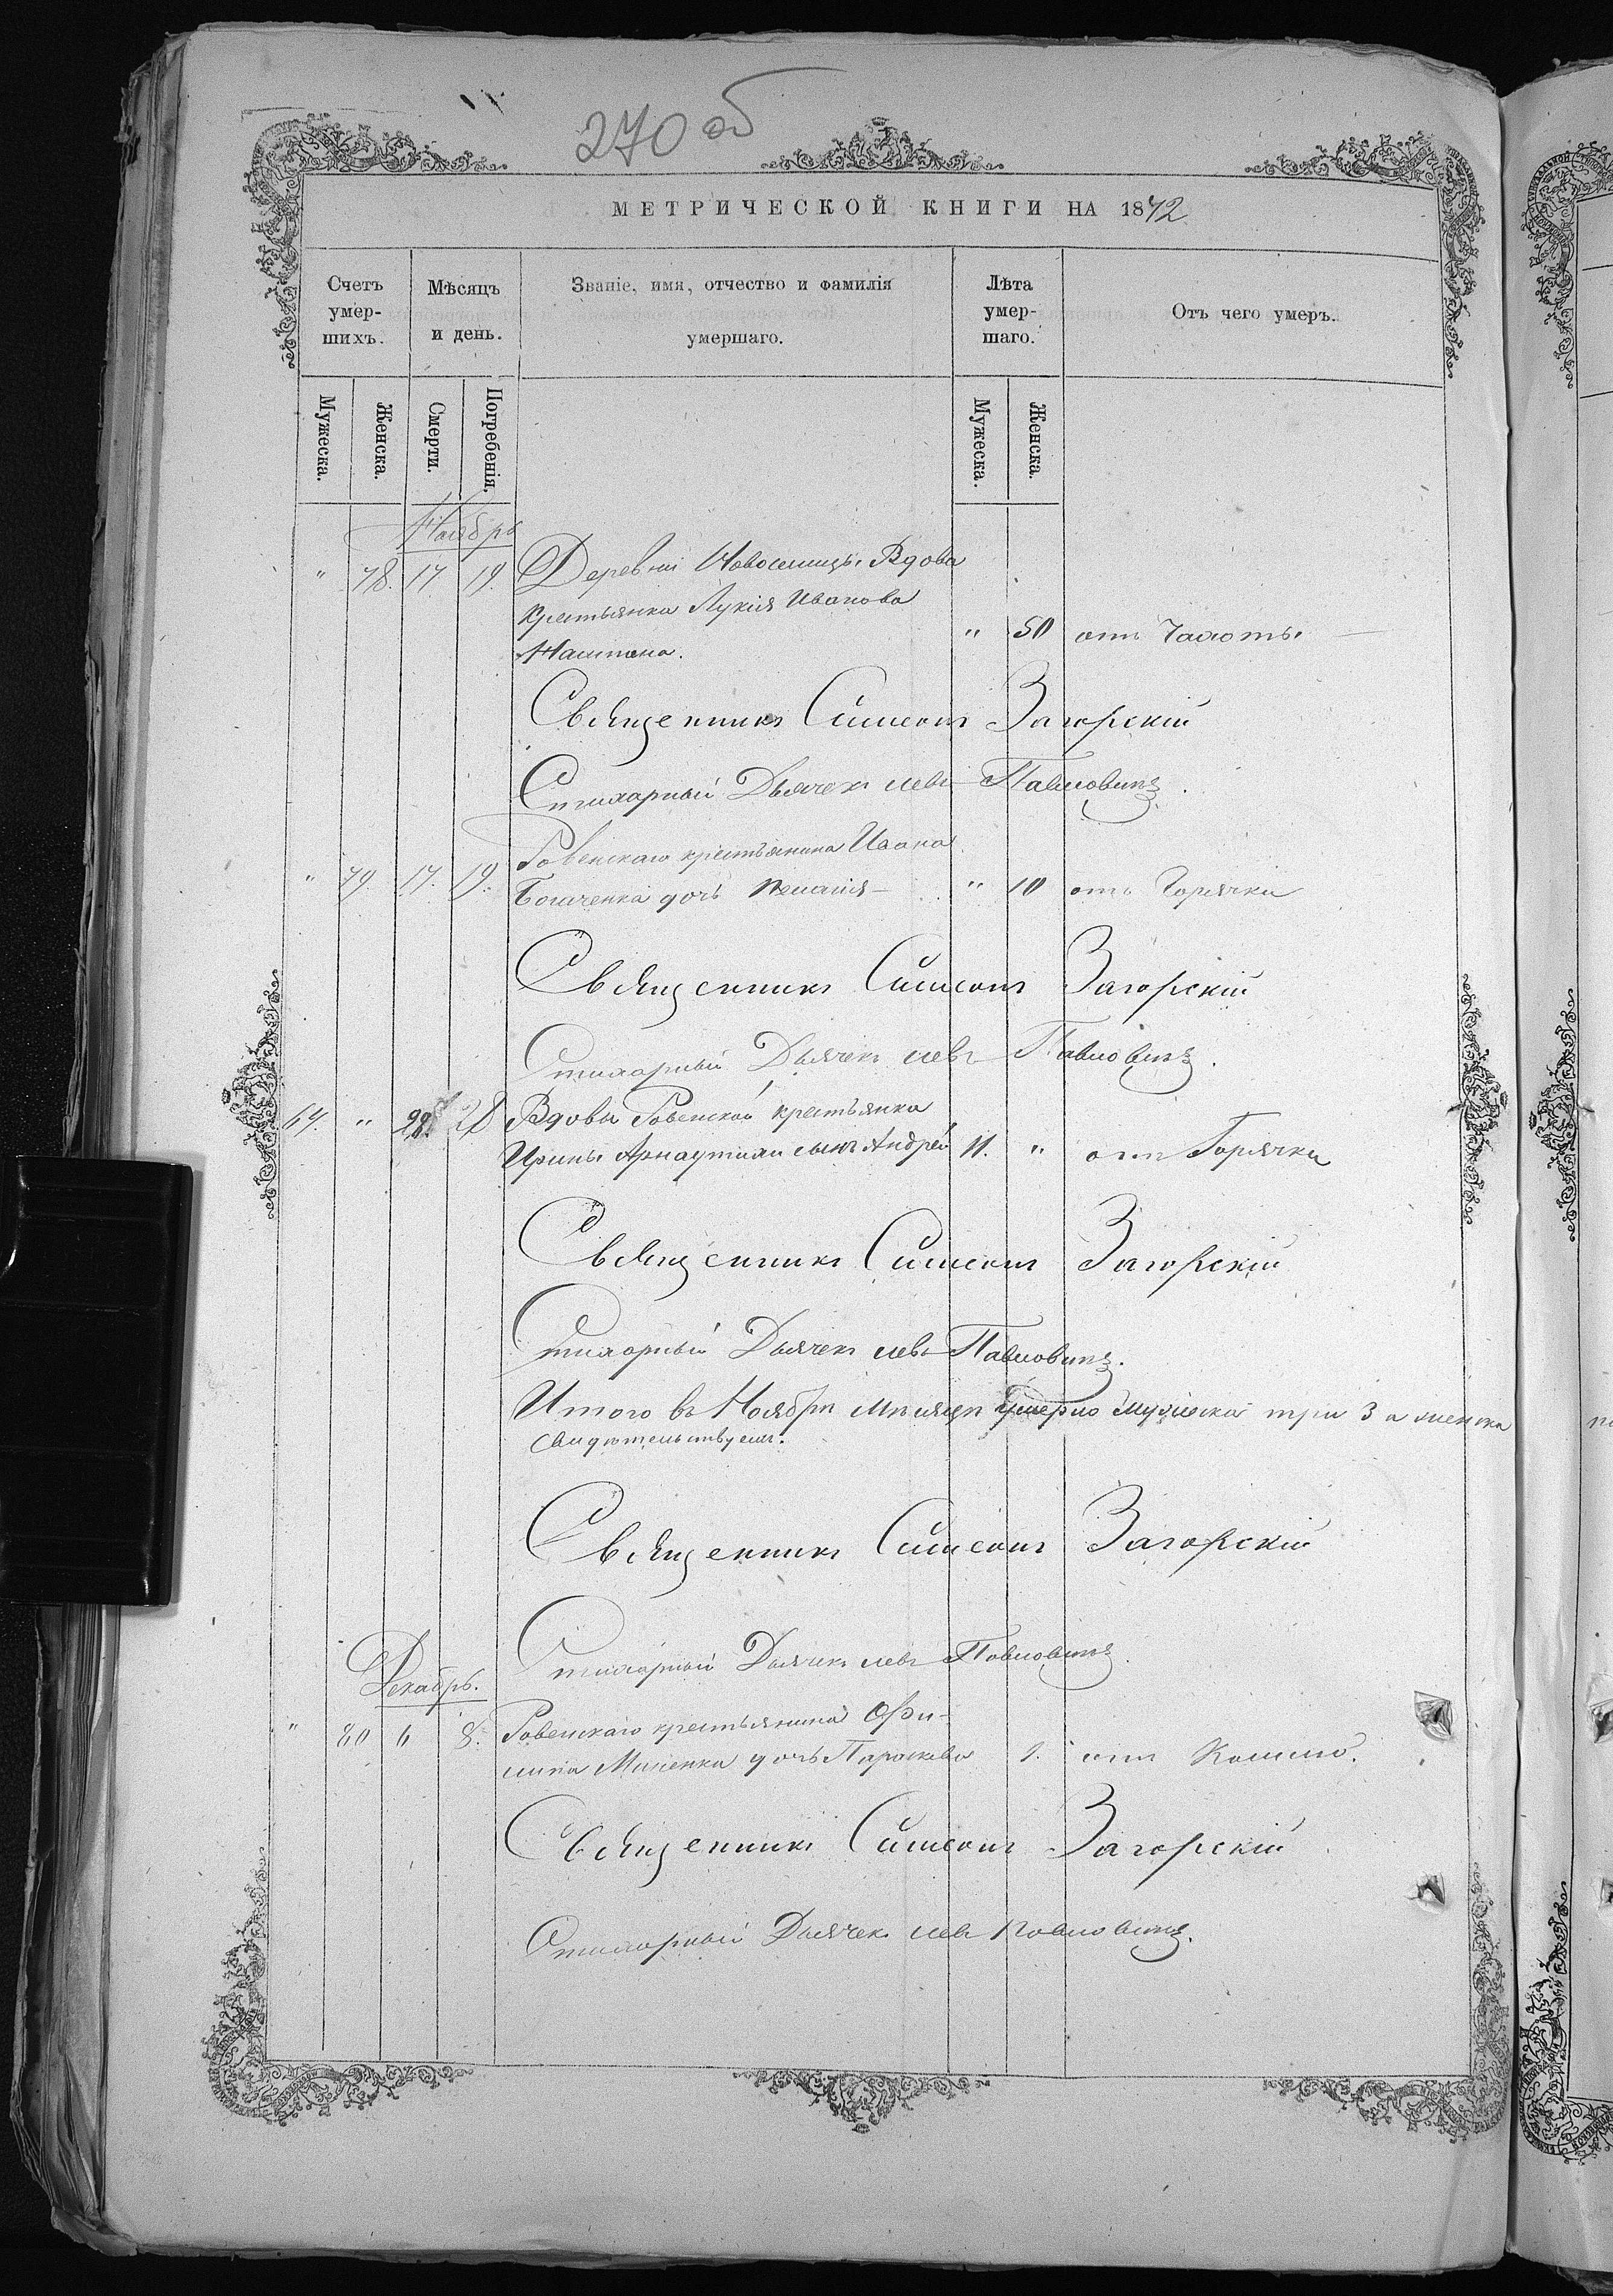 270 об
МЕТРИЧЕСКОЙ КНИГИ НА 1872
Счетъ умер-шихъ.
Мѣсяцъ и день.
Званіе, имя, отчество и фамилія умершаго.
Лѣта умер-шаго.
Отъ чего умеръ.
Мужеска.
Женска.
Смерти.
Погребенія.
Мужеска.
Женска.
Ноябрь
" 78. 17. 19. Деревни Новоселицы Вдова
Крестьянка Лукія Иванова
" 50 отъ Чахоты
Священникъ Симеонъ Загорскій
Стихарный Дьячекъ Левъ Павловичъ.
Ровенскаго крестьянина Ивана
" 79. 17. 19. дочь " 10 отъ Горячки
Священникъ Симеонъ Загорскій
Стихарный Дьячекъ Левъ Павловичъ.
64. " 28 Вдовы Ровенской крестьянки
Ирины сынъ Андрей 11. " отъ Горячки
Священникъ Симеонъ Загорскій
Стихарный Дьячекъ Левъ Павловичъ.
Итого въ Ноябрѣ Мѣсяцѣ Умерло Мужеска три 3 а женска
свидѣтельствуемъ.
Священникъ Симеонъ Загорскій
Стихарный Дьячекъ Левъ Павловичъ.
Декабрь.
" 80 6 8. Ровенскаго крестьянина
дочь Параскева 1. отъ Кашлю.
Священникъ Симеонъ Загорскій
Стихарный Дьячекъ Левъ Павловичъ.